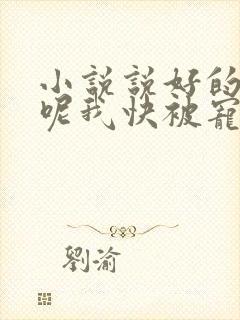 小説説好的
呢我快被寵
劉渝